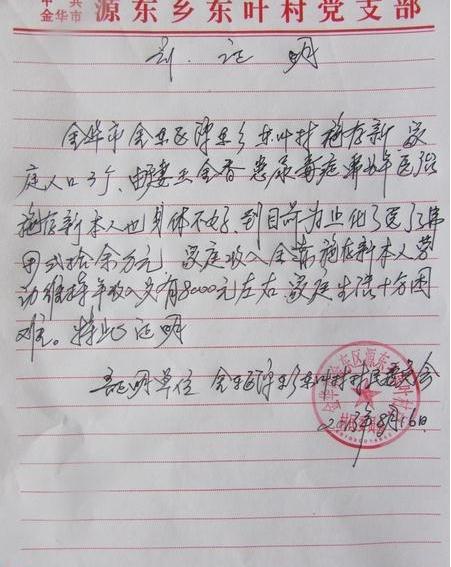 中共
金华市 源东乡东叶村党支部
证明
金华市金东区源东乡东叶村施存新 家
庭人口3个、由妻王金香患尿毒症 年医院
施存新本人也身体不好,到目前为止化了医疗费
用 拾余万元 家庭收入全靠施存新本人劳
动维持年收入只有8000元左右 家庭生活十分困
难。特此证明
证明单位 金东区源东乡东叶村村民委员会
2013年8月16日